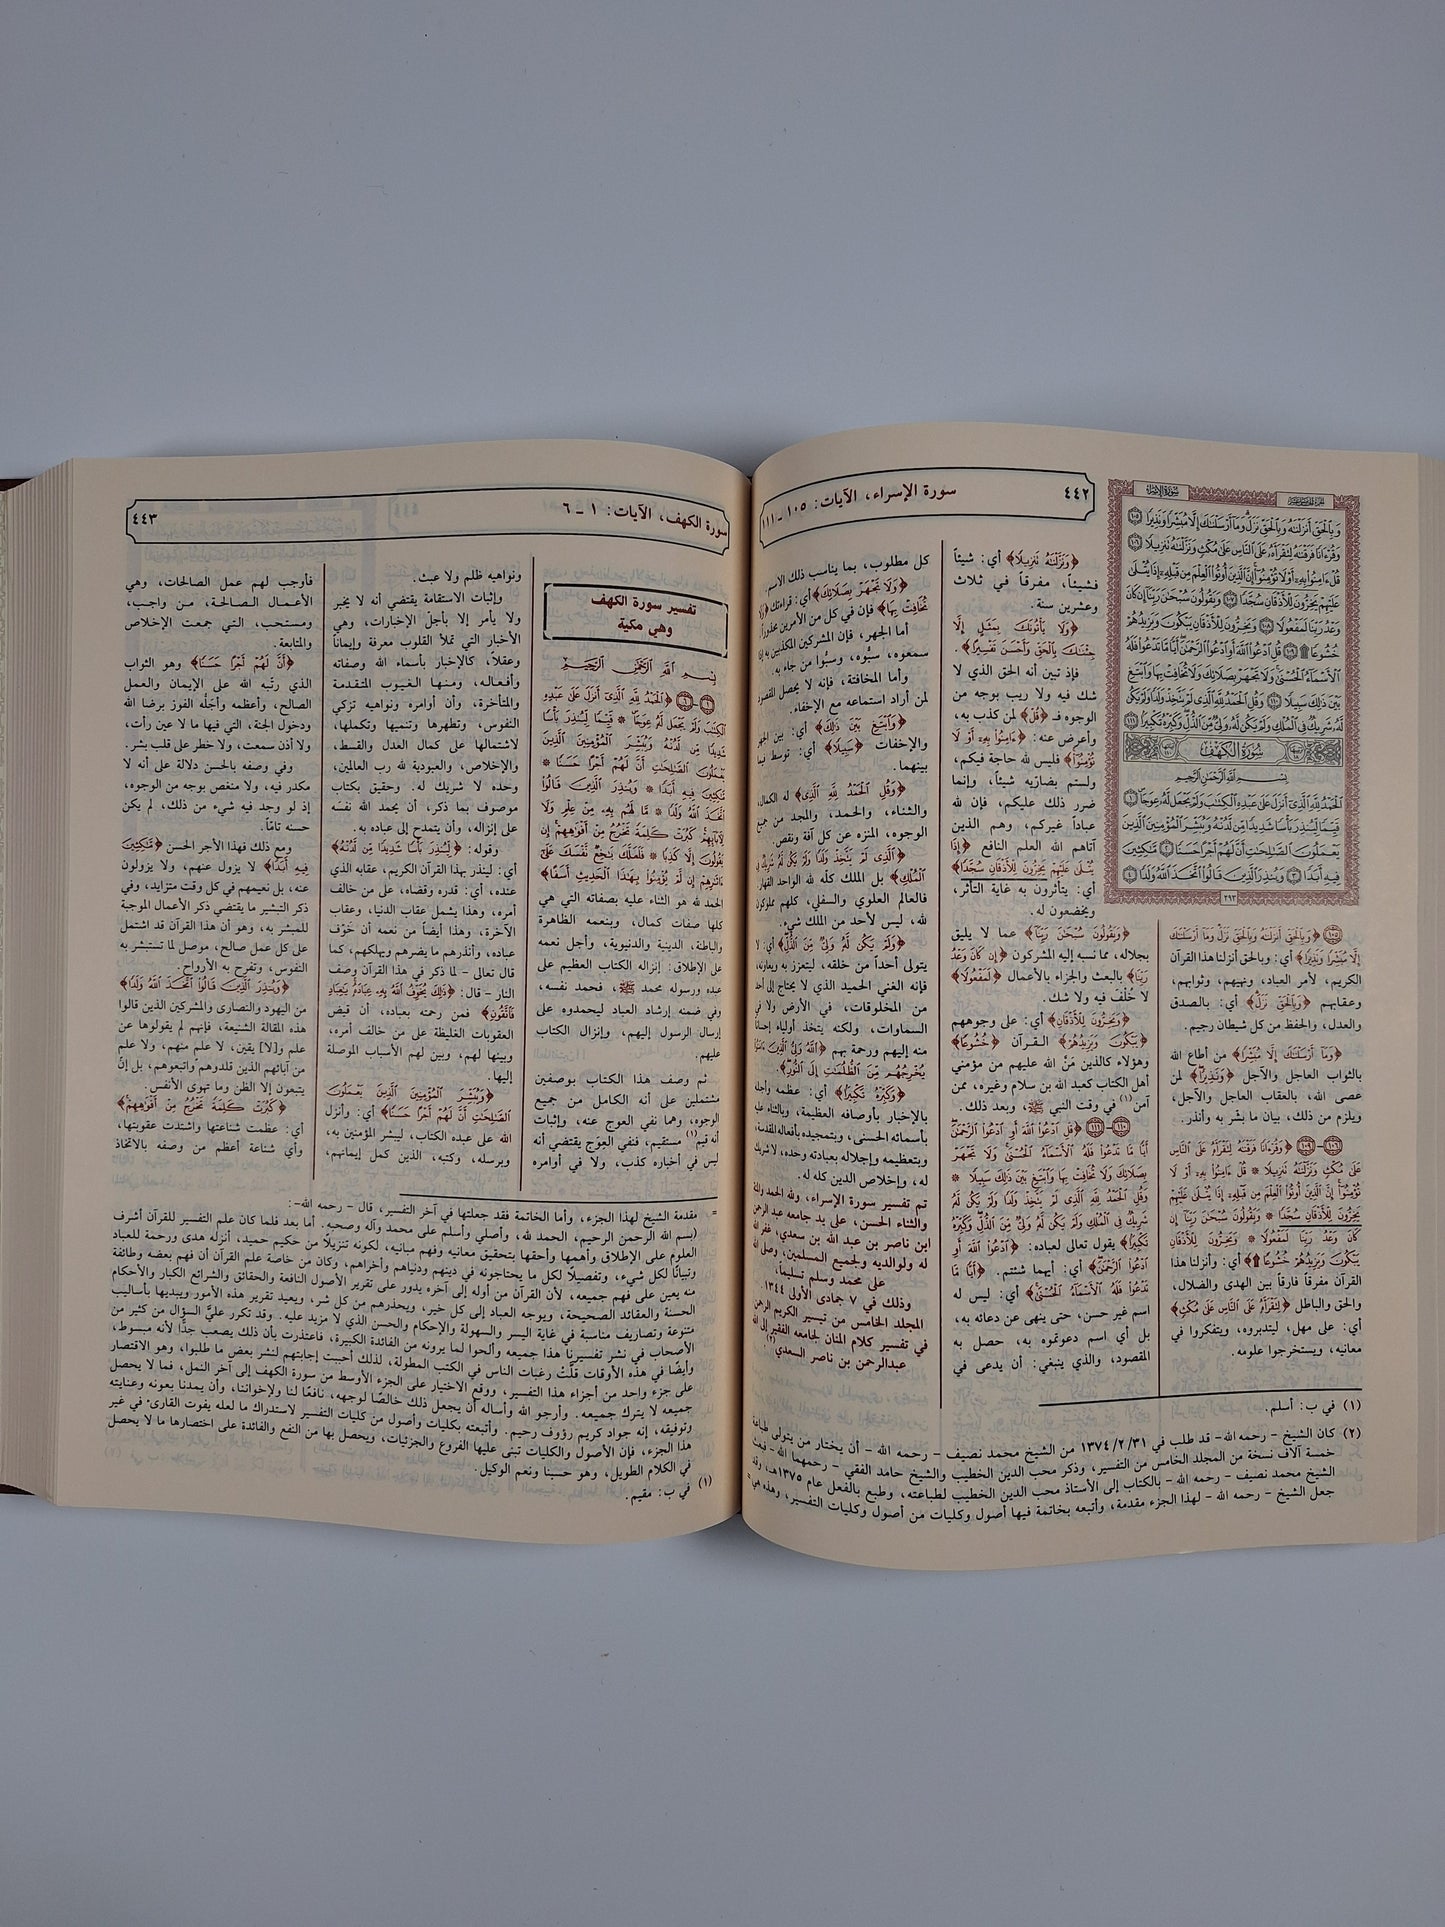 ٤٤٢
سورة الإسراء، الآيات: ١٠٥ - ١١١
سورة الإسراء
وَبِالْحَقِّ أَنزَلْنَاهُ وَبِالْحَقِّ نَزَلَ وَمَا أَرْسَلْنَاكَ إِلَّا مُبَشِّرًا وَنَذِيرًا ١٠٥
وَقُرْءَانًا فَرَقْنَاهُ لِتَقْرَأَهُ عَلَى النَّاسِ عَلَى مُكْثٍ وَنَزَّلْنَاهُ تَنزِيلًا ١٠٦
قُلْ ءَامِنُوا بِهِ أَوْ لَا تُؤْمِنُوا إِنَّ الَّذِينَ أُوتُوا الْعِلْمَ مِن قَبْلِهِ إِذَا يُتْلَى
عَلَيْهِمْ يَخِرُّونَ لِلْأَذْقَانِ سُجَّدًا ١٠٧ وَيَقُولُونَ سُبْحَانَ رَبِّنَا إِن كَانَ
وَعْدُ رَبِّنَا لَمَفْعُولًا ١٠٨ وَيَخِرُّونَ لِلْأَذْقَانِ يَبْكُونَ وَيَزِيدُهُمْ
خُشُوعًا ۩ ١٠٩ قُلِ ادْعُوا اللَّهَ أَوِ ادْعُوا الرَّحْمَنَ أَيًّا مَّا تَدْعُوا فَلَهُ
الْأَسْمَاءُ الْحُسْنَى وَلَا تَجْهَرْ بِصَلَاتِكَ وَلَا تُخَافِتْ بِهَا وَابْتَغِ
بَيْنَ ذَلِكَ سَبِيلًا ١١٠ وَقُلِ الْحَمْدُ لِلَّهِ الَّذِي لَمْ يَتَّخِذْ وَلَدًا وَلَمْ يَكُن
لَّهُ شَرِيكٌ فِي الْمُلْكِ وَلَمْ يَكُن لَّهُ وَلِيٌّ مِّنَ الذُّلِّ وَكَبِّرْهُ تَكْبِيرًا ١١١
سُورَةُ الكَهْفِ
بِسْمِ اللَّهِ الرَّحْمَنِ الرَّحِيمِ
الْحَمْدُ لِلَّهِ الَّذِي أَنزَلَ عَلَى عَبْدِهِ الْكِتَابَ وَلَمْ يَجْعَل لَّهُ عِوَجًا ١
قَيِّمًا لِّيُنذِرَ بَأْسًا شَدِيدًا مِّن لَّدُنْهُ وَيُبَشِّرَ الْمُؤْمِنِينَ الَّذِينَ
يَعْمَلُونَ الصَّالِحَاتِ أَنَّ لَهُمْ أَجْرًا حَسَنًا ٢ مَّاكِثِينَ
فِيهِ أَبَدًا ٣ وَيُنذِرَ الَّذِينَ قَالُوا اتَّخَذَ اللَّهُ وَلَدًا ٤
٢٩٣
(١٠٥) ﴿وَبِالْحَقِّ أَنزَلْنَاهُ وَبِالْحَقِّ نَزَلَ وَمَا أَرْسَلْنَاكَ
إِلَّا مُبَشِّرًا وَنَذِيرًا﴾ أي: وبالحق أنزلنا هذا القرآن
الكريم، لأمر العباد، ونهيهم، وثوابهم،
وعقابهم ﴿وَبِالْحَقِّ نَزَلَ﴾ أي: بالصدق
والعدل، والحفظ من كل شيطان رجيم.
﴿وَمَا أَرْسَلْنَاكَ إِلَّا مُبَشِّرًا﴾ من أطاع الله
بالثواب العاجل والآجل ﴿وَنَذِيرًا﴾ لمن
عصى الله، بالعقاب العاجل والآجل،
ويلزم من ذلك، بيان ما بشّر به وأنذر.
(١٠٦-١٠٩) ﴿وَقُرْءَانًا فَرَقْنَاهُ لِتَقْرَأَهُ عَلَى النَّاسِ
عَلَى مُكْثٍ وَنَزَّلْنَاهُ تَنزِيلًا * قُلْ ءَامِنُوا بِهِ أَوْ لَا
تُؤْمِنُوا إِنَّ الَّذِينَ أُوتُوا الْعِلْمَ مِن قَبْلِهِ إِذَا يُتْلَى عَلَيْهِمْ
يَخِرُّونَ لِلْأَذْقَانِ سُجَّدًا * وَيَقُولُونَ سُبْحَانَ رَبِّنَا إِن
كَانَ وَعْدُ رَبِّنَا لَمَفْعُولًا * وَيَخِرُّونَ لِلْأَذْقَانِ
يَبْكُونَ وَيَزِيدُهُمْ خُشُوعًا ۩﴾ أي: وأنزلنا هذا
القرآن مفرقًا فارقاً بين الهدى والضلال،
والحق والباطل ﴿لِتَقْرَأَهُ عَلَى النَّاسِ عَلَى مُكْثٍ﴾
أي: على مهل، ليتدبروه، ويتفكروا في
معانيه، ويستخرجوا علومه.
﴿وَنَزَّلْنَاهُ تَنزِيلًا﴾ أي: شيئاً
فشيئاً، مفرقاً في ثلاث
وعشرين سنة.
﴿وَلَا يَأْتُونَكَ بِمَثَلٍ إِلَّا
جِئْنَاكَ بِالْحَقِّ وَأَحْسَنَ تَفْسِيرًا﴾.
فإذ تبين أنه الحق الذي لا
شك فيه ولا ريب بوجه من
الوجوه فـ ﴿قُلْ﴾ لمن كذب به،
وأعرض عنه: ﴿ءَامِنُوا بِهِ أَوْ لَا
تُؤْمِنُوا﴾ فليس لله حاجة فيكم،
ولستم بضارّيه شيئاً، وإنما
ضرر ذلك عليكم، فإن لله
عباداً غيركم، وهم الذين
آتاهم الله العلم النافع ﴿إِذَا
يُتْلَى عَلَيْهِمْ يَخِرُّونَ لِلْأَذْقَانِ سُجَّدًا﴾
أي: يتأثرون به غاية التأثر،
ويخضعون له.
﴿وَيَقُولُونَ سُبْحَانَ رَبِّنَا﴾ عما لا يليق
بجلاله، مما نسبه إليه المشركون ﴿إِن كَانَ وَعْدُ
رَبِّنَا﴾ بالبعث والجزاء بالأعمال ﴿لَمَفْعُولًا﴾
لا خُلْفَ فيه ولا شك.
﴿وَيَخِرُّونَ لِلْأَذْقَانِ﴾ أي: على وجوههم
﴿يَبْكُونَ وَيَزِيدُهُمْ﴾ القرآن ﴿خُشُوعًا﴾
وهؤلاء كالذين مَنَّ الله عليهم من مؤمني
أهل الكتاب كعبد الله بن سلام وغيره، ممن
آمن(١) في وقت النبي ﷺ، وبعد ذلك.
(١١٠-١١١) ﴿قُلِ ادْعُوا اللَّهَ أَوِ ادْعُوا الرَّحْمَنَ
أَيًّا مَّا تَدْعُوا فَلَهُ الْأَسْمَاءُ الْحُسْنَى وَلَا تَجْهَرْ
بِصَلَاتِكَ وَلَا تُخَافِتْ بِهَا وَابْتَغِ بَيْنَ ذَلِكَ سَبِيلًا *
وَقُلِ الْحَمْدُ لِلَّهِ الَّذِي لَمْ يَتَّخِذْ وَلَدًا وَلَمْ يَكُن لَّهُ
شَرِيكٌ فِي الْمُلْكِ وَلَمْ يَكُن لَّهُ وَلِيٌّ مِّنَ الذُّلِّ وَكَبِّرْهُ
تَكْبِيرًا﴾ يقول تعالى لعباده: ﴿ادْعُوا اللَّهَ أَوِ
ادْعُوا الرَّحْمَنَ﴾ أي: أيهما شئتم. ﴿أَيًّا مَّا
تَدْعُوا فَلَهُ الْأَسْمَاءُ الْحُسْنَى﴾ أي: ليس له
اسم غير حسن، حتى ينهى عن دعائه به،
بل أي اسم دعوتموه به، حصل به
المقصود، والذي ينبغي: أن يدعى في
كل مطلوب، بما يناسب ذلك الاسم.
﴿وَلَا تَجْهَرْ بِصَلَاتِكَ﴾ أي: قراءتك ﴿وَلَا
تُخَافِتْ بِهَا﴾ فإن في كل من الأمرين محذوراً.
أما الجهر، فإن المشركين المكذبين به إذا
سمعوه، سبّوه، وسبُّوا من جاء به.
وأما المخافتة، فإنه لا يحصل المقصود
لمن أراد استماعه مع الإخفاء.
﴿وَابْتَغِ بَيْنَ ذَلِكَ﴾ أي: بين الجهر
والإخفات ﴿سَبِيلًا﴾ أي: توسط فيما
بينهما.
﴿وَقُلِ الْحَمْدُ لِلَّهِ الَّذِي﴾ له الكمال،
والثناء، والحمد، والمجد من جميع
الوجوه، المنزه عن كل آفة ونقص.
﴿الَّذِي لَمْ يَتَّخِذْ وَلَدًا وَلَمْ يَكُن لَّهُ شَرِيكٌ فِي
الْمُلْكِ﴾ بل الملك كلّه لله الواحد القهار،
فالعالم العلوي والسفلي، كلهم مملوكون
لله، ليس لأحد من الملك شيء.
﴿وَلَمْ يَكُن لَّهُ وَلِيٌّ مِّنَ الذُّلِّ﴾ أي: لا
يتولى أحداً من خلقه، ليتعزز به ويعاونه،
فإنه الغني الحميد الذي لا يحتاج إلى أحد
من المخلوقات، في الأرض ولا في
السماوات، ولكنه يتخذ أولياء إحسانًا
منه إليهم ورحمة بهم ﴿اللَّهُ وَلِيُّ الَّذِينَ ءَامَنُوا
يُخْرِجُهُم مِّنَ الظُّلُمَاتِ إِلَى النُّورِ﴾.
﴿وَكَبِّرْهُ تَكْبِيرًا﴾ أي: عظمه وأجله
بالإخبار بأوصافه العظيمة، وبالثناء عليه
بأسمائه الحسنى، وبتمجيده بأفعاله المقدسة،
وبتعظيمه وإجلاله بعبادته وحده، لا شريك
له، وإخلاص الدين كله له.
تم تفسير سورة الإسراء، ولله الحمد والمنة
والثناء الحسن، على يد جامعه عبد الرحمن
ابن ناصر بن عبد الله بن سعدي، غفر الله
له ولوالديه ولجميع المسلمين، وصلى الله
على محمد وسلم تسليماً.
وذلك في ٧ جمادى الأولى ١٣٤٤.
المجلد الخامس من تيسير الكريم الرحمن
في تفسير كلام المنان لجامعه الفقير إلى الله
عبدالرحمن بن ناصر السعدي(٢).
(١) في ب: أسلم.
(٢) كان الشيخ - رحمه الله - قد طلب في ١٣٧٤/٢/٣١ من الشيخ محمد نصيف - رحمه الله - أن يختار من يتولى طباعة
خمسة آلاف نسخة من المجلد الخامس من التفسير، وذكر محب الدين الخطيب والشيخ حامد الفقي - رحمهما الله - فبعث
الشيخ محمد نصيف - رحمه الله - بالكتاب إلى الأستاذ محب الدين الخطيب لطباعته، وطبع بالفعل عام ١٣٧٥هـ، وقد
جعل الشيخ - رحمه الله - لهذا الجزء مقدمة، وأتبعه بخاتمة فيها أصول وكليات من أصول وكليات التفسير، وهذه هي =
سورة الكهف، الآيات: ١ - ٦
٤٤٣
تفسير سورة الكهف
وهي مكية
بِسْمِ اللَّهِ الرَّحْمَنِ الرَّحِيمِ
(١-٦) ﴿الْحَمْدُ لِلَّهِ الَّذِي أَنزَلَ عَلَى عَبْدِهِ
الْكِتَابَ وَلَمْ يَجْعَل لَّهُ عِوَجًا * قَيِّمًا لِّيُنذِرَ بَأْسًا
شَدِيدًا مِّن لَّدُنْهُ وَيُبَشِّرَ الْمُؤْمِنِينَ الَّذِينَ
يَعْمَلُونَ الصَّالِحَاتِ أَنَّ لَهُمْ أَجْرًا حَسَنًا *
مَّاكِثِينَ فِيهِ أَبَدًا * وَيُنذِرَ الَّذِينَ قَالُوا
اتَّخَذَ اللَّهُ وَلَدًا * مَّا لَهُم بِهِ مِنْ عِلْمٍ وَلَا
لِآبَائِهِمْ كَبُرَتْ كَلِمَةً تَخْرُجُ مِنْ أَفْوَاهِهِمْ إِن
يَقُولُونَ إِلَّا كَذِبًا * فَلَعَلَّكَ بَاخِعٌ نَّفْسَكَ عَلَى
ءَاثَارِهِمْ إِن لَّمْ يُؤْمِنُوا بِهَذَا الْحَدِيثِ أَسَفًا﴾
الحمد لله هو الثناء عليه بصفاته التي هي
كلها صفات كمال، وبنعمه الظاهرة
والباطنة، الدينية والدنيوية، وأجل نعمه
على الإطلاق: إنزاله الكتاب العظيم على
عبده ورسوله محمد ﷺ، فحمد نفسه،
وفي ضمنه إرشاد العباد ليحمدوه على
إرسال الرسول إليهم، وإنزال الكتاب
عليهم.
ثم وصف هذا الكتاب بوصفين
مشتملين على أنه الكامل من جميع
الوجوه، وهما نفي العوج عنه، وإثبات
أنه قيم(١) مستقيم، فنفي العِوَج يقتضي أنه
ليس في أخباره كذب، ولا في أوامره
ونواهيه ظلم ولا عبث.
وإثبات الاستقامة يقتضي أنه لا يخبر
ولا يأمر إلا بأجلّ الإخبارات، وهي
الأخبار التي تملأ القلوب معرفة وإيماناً
وعقلاً، كالإخبار بأسماء الله وصفاته
وأفعاله، ومنها الغيوب المتقدمة
والمتأخرة، وأن أوامره ونواهيه تزكي
النفوس، وتطهرها وتنميها وتكملها،
لاشتمالها على كمال العدل والقسط،
والإخلاص، والعبودية لله رب العالمين،
وحده لا شريك له. وحقيق بكتاب
موصوف بما ذكر، أن يحمد الله نفسَه
على إنزاله، وأن يتمدح إلى عباده به.
وقوله: ﴿لِّيُنذِرَ بَأْسًا شَدِيدًا مِّن لَّدُنْهُ﴾
أي: لينذر بهذا القرآن الكريم، عقابه الذي
عنده، أي: قدره وقضاه، على من خالف
أمره، وهذا يشمل عقاب الدنيا، وعقاب
الآخرة، وهذا أيضاً من نعمه أن خَوَّف
عباده، وأنذرهم ما يضرهم ويهلكهم، كما
قال تعالى - لما ذكر في هذا القرآن وصف
النار - قال: ﴿ذَلِكَ يُخَوِّفُ اللَّهُ بِهِ عِبَادَهُ يَاعِبَادِ
فَاتَّقُونِ﴾ فمن رحمته بعباده، أن قيض
العقوبات الغليظة على من خالف أمره،
وبينها لهم، وبين لهم الأسباب الموصلة
إليها.
﴿وَيُبَشِّرَ الْمُؤْمِنِينَ الَّذِينَ يَعْمَلُونَ
الصَّالِحَاتِ أَنَّ لَهُمْ أَجْرًا حَسَنًا﴾ أي: وأنزل
الله على عبده الكتاب، ليبشر المؤمنين به،
وبرسله، وكتبه، الذين كمل إيمانهم،
فأوجب لهم عمل الصالحات، وهي
الأعمال الصالحة، من واجب،
ومستحب، التي جمعت الإخلاص
والمتابعة.
﴿أَنَّ لَهُمْ أَجْرًا حَسَنًا﴾ وهو الثواب
الذي رتّبه الله على الإيمان والعمل
الصالح، وأعظمه وأجلُّه الفوز برضا الله
ودخول الجنة، التي فيها ما لا عين رأت،
ولا أذن سمعت، ولا خطر على قلب بشر.
وفي وصفه بالحسن دلالة على أنه لا
مكدر فيه، ولا منغص بوجه من الوجوه،
إذ لو وجد فيه شيء من ذلك، لم يكن
حسنه تامًّا.
ومع ذلك فهذا الأجر الحسن ﴿مَّاكِثِينَ
فِيهِ أَبَدًا﴾ لا يزول عنهم، ولا يزولون
عنه، بل نعيمهم في كل وقت متزايد، وفي
ذكر التبشير ما يقتضي ذكر الأعمال الموجبة
للمبشر به، وهو أن هذا القرآن قد اشتمل
على كل عمل صالح، موصل لما تستبشر به
النفوس، وتفرح به الأرواح.
﴿وَيُنذِرَ الَّذِينَ قَالُوا اتَّخَذَ اللَّهُ وَلَدًا﴾
من اليهود والنصارى والمشركين الذين قالوا
هذه المقالة الشنيعة، فإنهم لم يقولوها عن
علم و[لا] يقين، لا علم منهم، ولا علم
من آبائهم الذين قلدوهم واتبعوهم، بل إنْ
يتبعون إلا الظن وما تهوى الأنفس.
﴿كَبُرَتْ كَلِمَةً تَخْرُجُ مِنْ أَفْوَاهِهِمْ﴾
أي: عظمت شناعتها واشتدت عقوبتها،
وأي شناعة أعظم من وصفه بالاتخاذ
= مقدمة الشيخ لهذا الجزء، وأما الخاتمة فقد جعلتها في آخر التفسير، قال - رحمه الله -:
(بسم الله الرحمن الرحيم، الحمد لله، وأصلي وأسلم على محمد وآله وصحبه. أما بعد فلما كان علم التفسير للقرآن أشرف
العلوم على الإطلاق وأهمها وأحقها بتحقيق معانيه وفهم مبانيه، لكونه تنزيلًا من حكيم حميد، أنزله هدى ورحمة للعباد
وتبيانًا لكل شيء، وتفصيلًا لكل ما يحتاجونه في دينهم ودنياهم وأخراهم، وكان من خاصة علم القرآن أن فهم بعضه وطائفة
منه يعين على فهم جميعه، لأن القرآن من أوله إلى آخره يدور على تقرير الأصول النافعة والحقائق والشرائع الكبار والأحكام
الحسنة والعقائد الصحيحة، ويوجه العباد إلى كل خير، ويحذرهم من كل شر، ويعيد تقرير هذه الأمور ويبديها بأساليب
متنوعة وتصاريف مناسبة في غاية اليسر والسهولة والإحكام والحسن الذي لا مزيد عليه. وقد تكرر عليَّ السؤال من كثير من
الأصحاب في نشر تفسيرنا هذا جميعه وألحوا لما يرونه من الفائدة الكبيرة، فاعتذرت بأن ذلك يصعب جدًّا لأنه مبسوط،
وأيضًا في هذه الأوقات قلَّتْ رغبات الناس في الكتب المطولة، لذلك أحببت إجابتهم لنشر بعض ما طلبوا، وهو الاقتصار
على جزء واحد من أجزاء هذا التفسير، ووقع الاختيار على الجزء الأوسط من سورة الكهف إلى آخر النمل، فما لا يحصل
جميعه لا يترك جميعه. وأرجو الله وأسأله أن يجعل ذلك خالصًا لوجهه، نافعًا لنا ولإخواننا، وأن يمدنا بعونه وعنايته
وتوفيقه، إنه جواد كريم رؤوف رحيم. وأتبعته بكليات وأصول من كليات التفسير لاستدراك ما لعله يفوت القارىء في غير
هذا الجزء، فإن الأصول والكليات تبنى عليها الفروع والجزئيات، ويحصل بها من النفع والفائدة على اختصارها ما لا يحصل
في الكلام الطويل، وهو حسبنا ونعم الوكيل.
(١) في ب: مقيم.